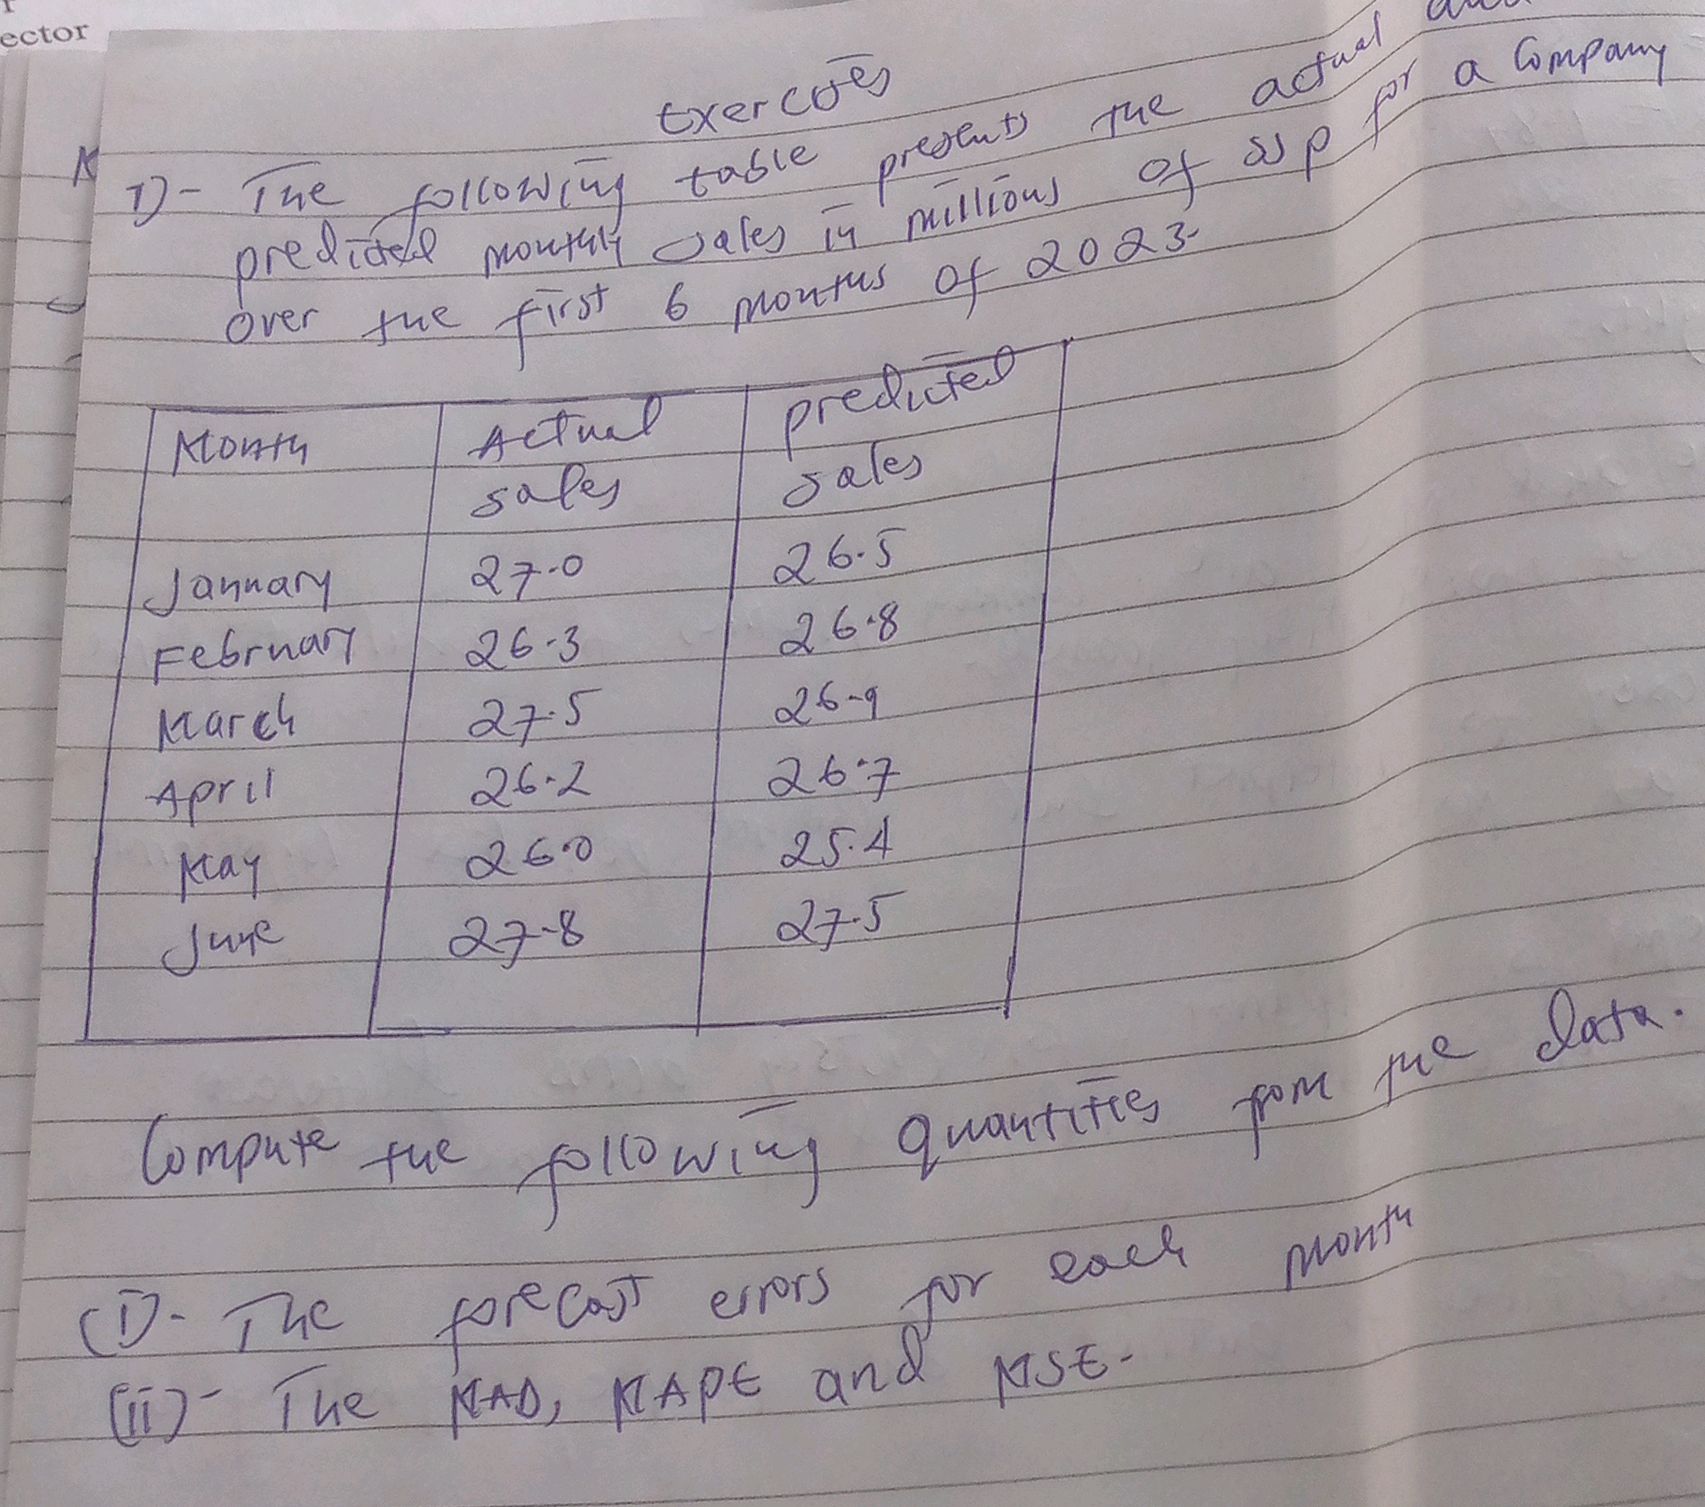 ector
Exercises
1)- The following table presents the actual and
predicted monthly sales in millions of SSP for a company
over the first 6 months of 2023.
Month Actual sales predicted sales
January 27.0 26.5
February 26.3 26.8
March 27.5 26.9
April 26.2 26.7
May 26.0 25.4
June 27.8 27.5
Compute the following quantities from the data.
(i)- The forecast errors for each month
(ii)- The MAD, MAPE and MSE.